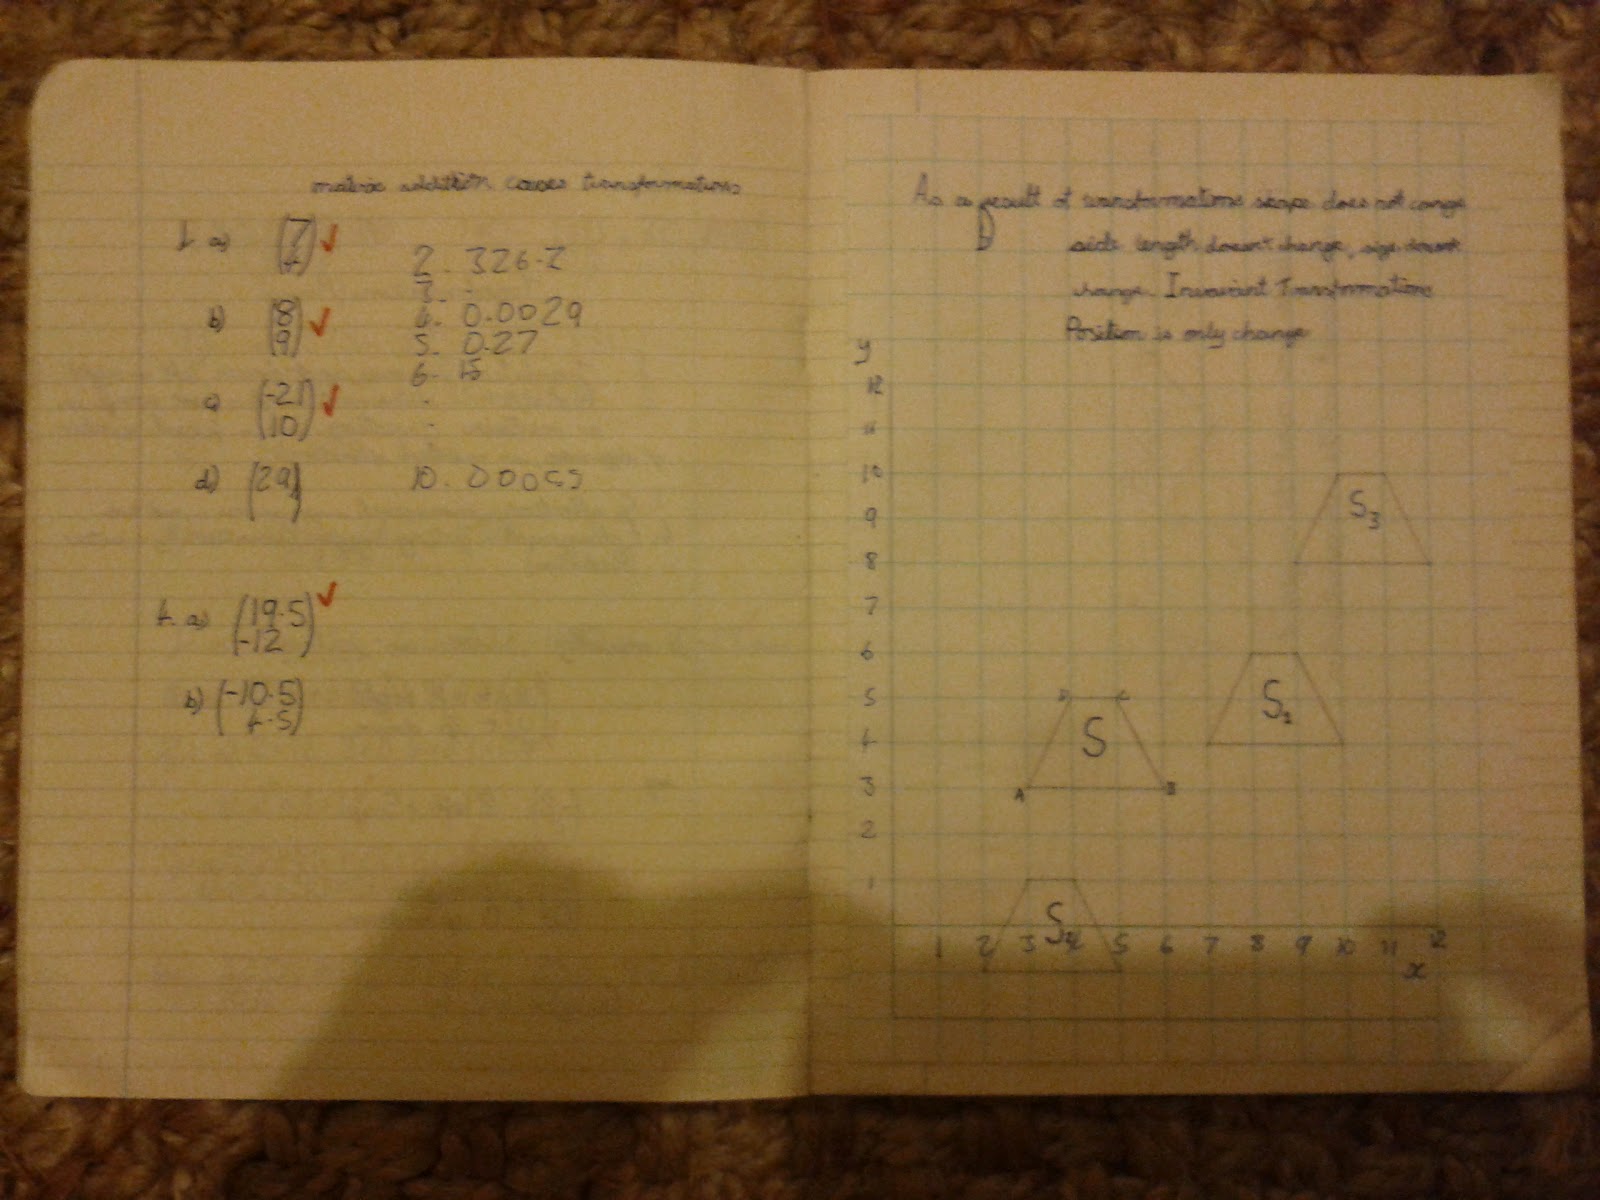 matrix addition causes transformations
1. a) (7
4)
b) (8
9)
c) (-21
10)
d) (29
2. 326.7
3. -
4. 0.0029
5. 0.27
6. 15
-
-
10.
4. a) (19.5
-12)
b) (-10.5
4.5)
As a result of transformations shape does not cange
side length doesn't change, size doesnt
change. Invariant Transformations
Position is only change
y
12
11
10
9
8
7
6
5
4
3
2
1
S3
S2
D C
S
A B
S4
1 2 3 4 5 6 7 8 9 10 11 12
x